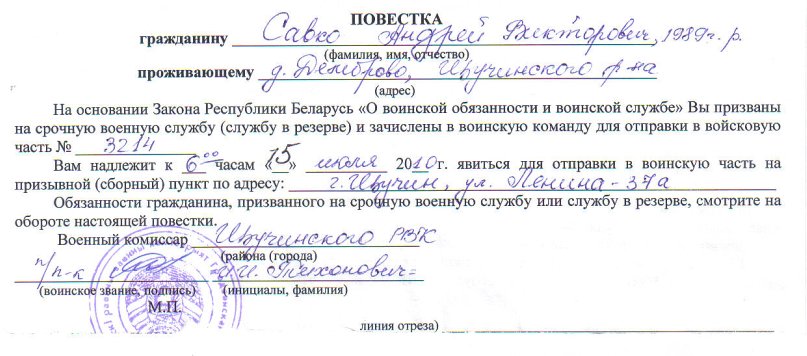 ПОВЕСТКА
гражданину Савко Андрей Викторович, 1989г.р.
(фамилия, имя, отчество)
проживающему д. Демброво, Щучинского р-на
(адрес)
На основании Закона Республики Беларусь «О воинской обязанности и воинской службе» Вы призваны
на срочную военную службу (службу в резерве) и зачислены в воинскую команду для отправки в войсковую
часть № 3214
Вам надлежит к 6 00 часам «15» июля 2010г. явиться для отправки в воинскую часть на
призывной (сборный) пункт по адресу: г. Щучин, ул. Ленина-37а
Обязанности гражданина, призванного на срочную военную службу или службу в резерве, смотрите на
обороте настоящей повестки.
Военный комиссар Щучинского РВК
(района (города)
п/п-к
(воинское звание, подпись) (инициалы, фамилия)
М.П.
линия отреза)